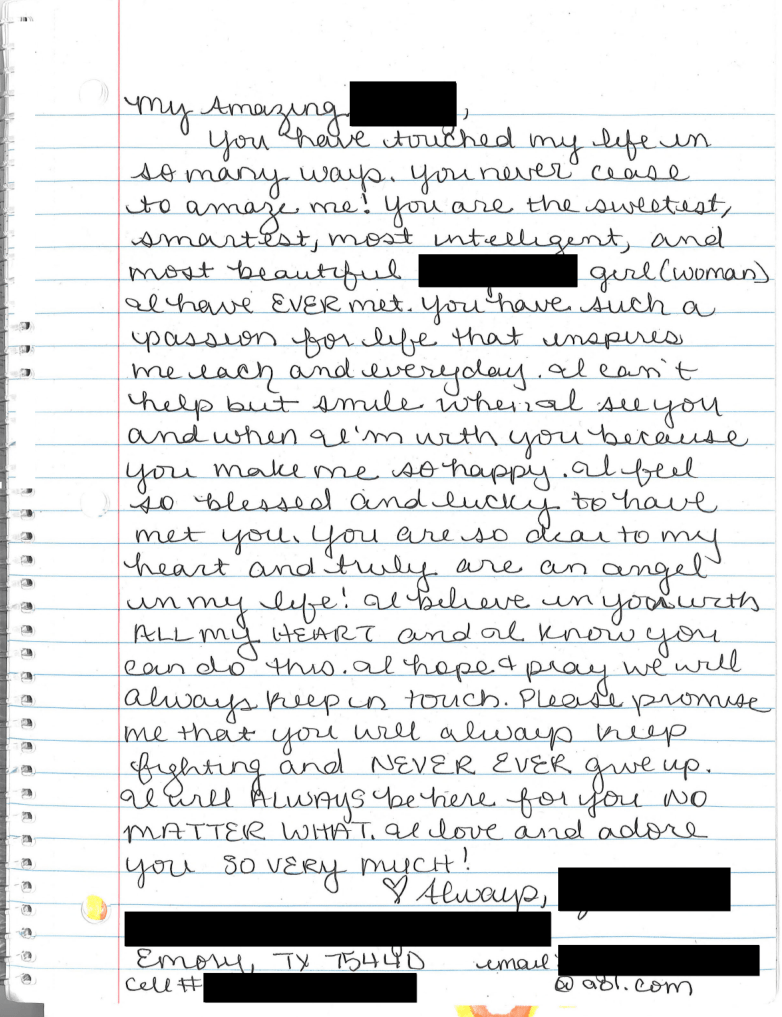 My Amazing ,
You have touched my life in
so many ways. You never cease
to amaze me! You are the sweetest,
smartest, most intelligent, and
most beautiful girl (woman)
I have EVER met. You have such a
passion for life that inspires
me each and everyday. I can't
help but smile when I see you
and when I'm with you because
you make me so happy. I feel
so blessed and lucky to have
met you. You are so dear to my
heart and truly are an angel
in my life! I believe in you with
ALL my HEART and I know you
can do this. I hope & pray we will
always keep in touch. Please promise
me that you will always keep
fighting and NEVER EVER give up.
I will ALWAYS be here for you NO
MATTER WHAT. I love and adore
you SO VERY MUCH!
♡ Always,
Emory, TX 75440 email:
cell # @aol.com